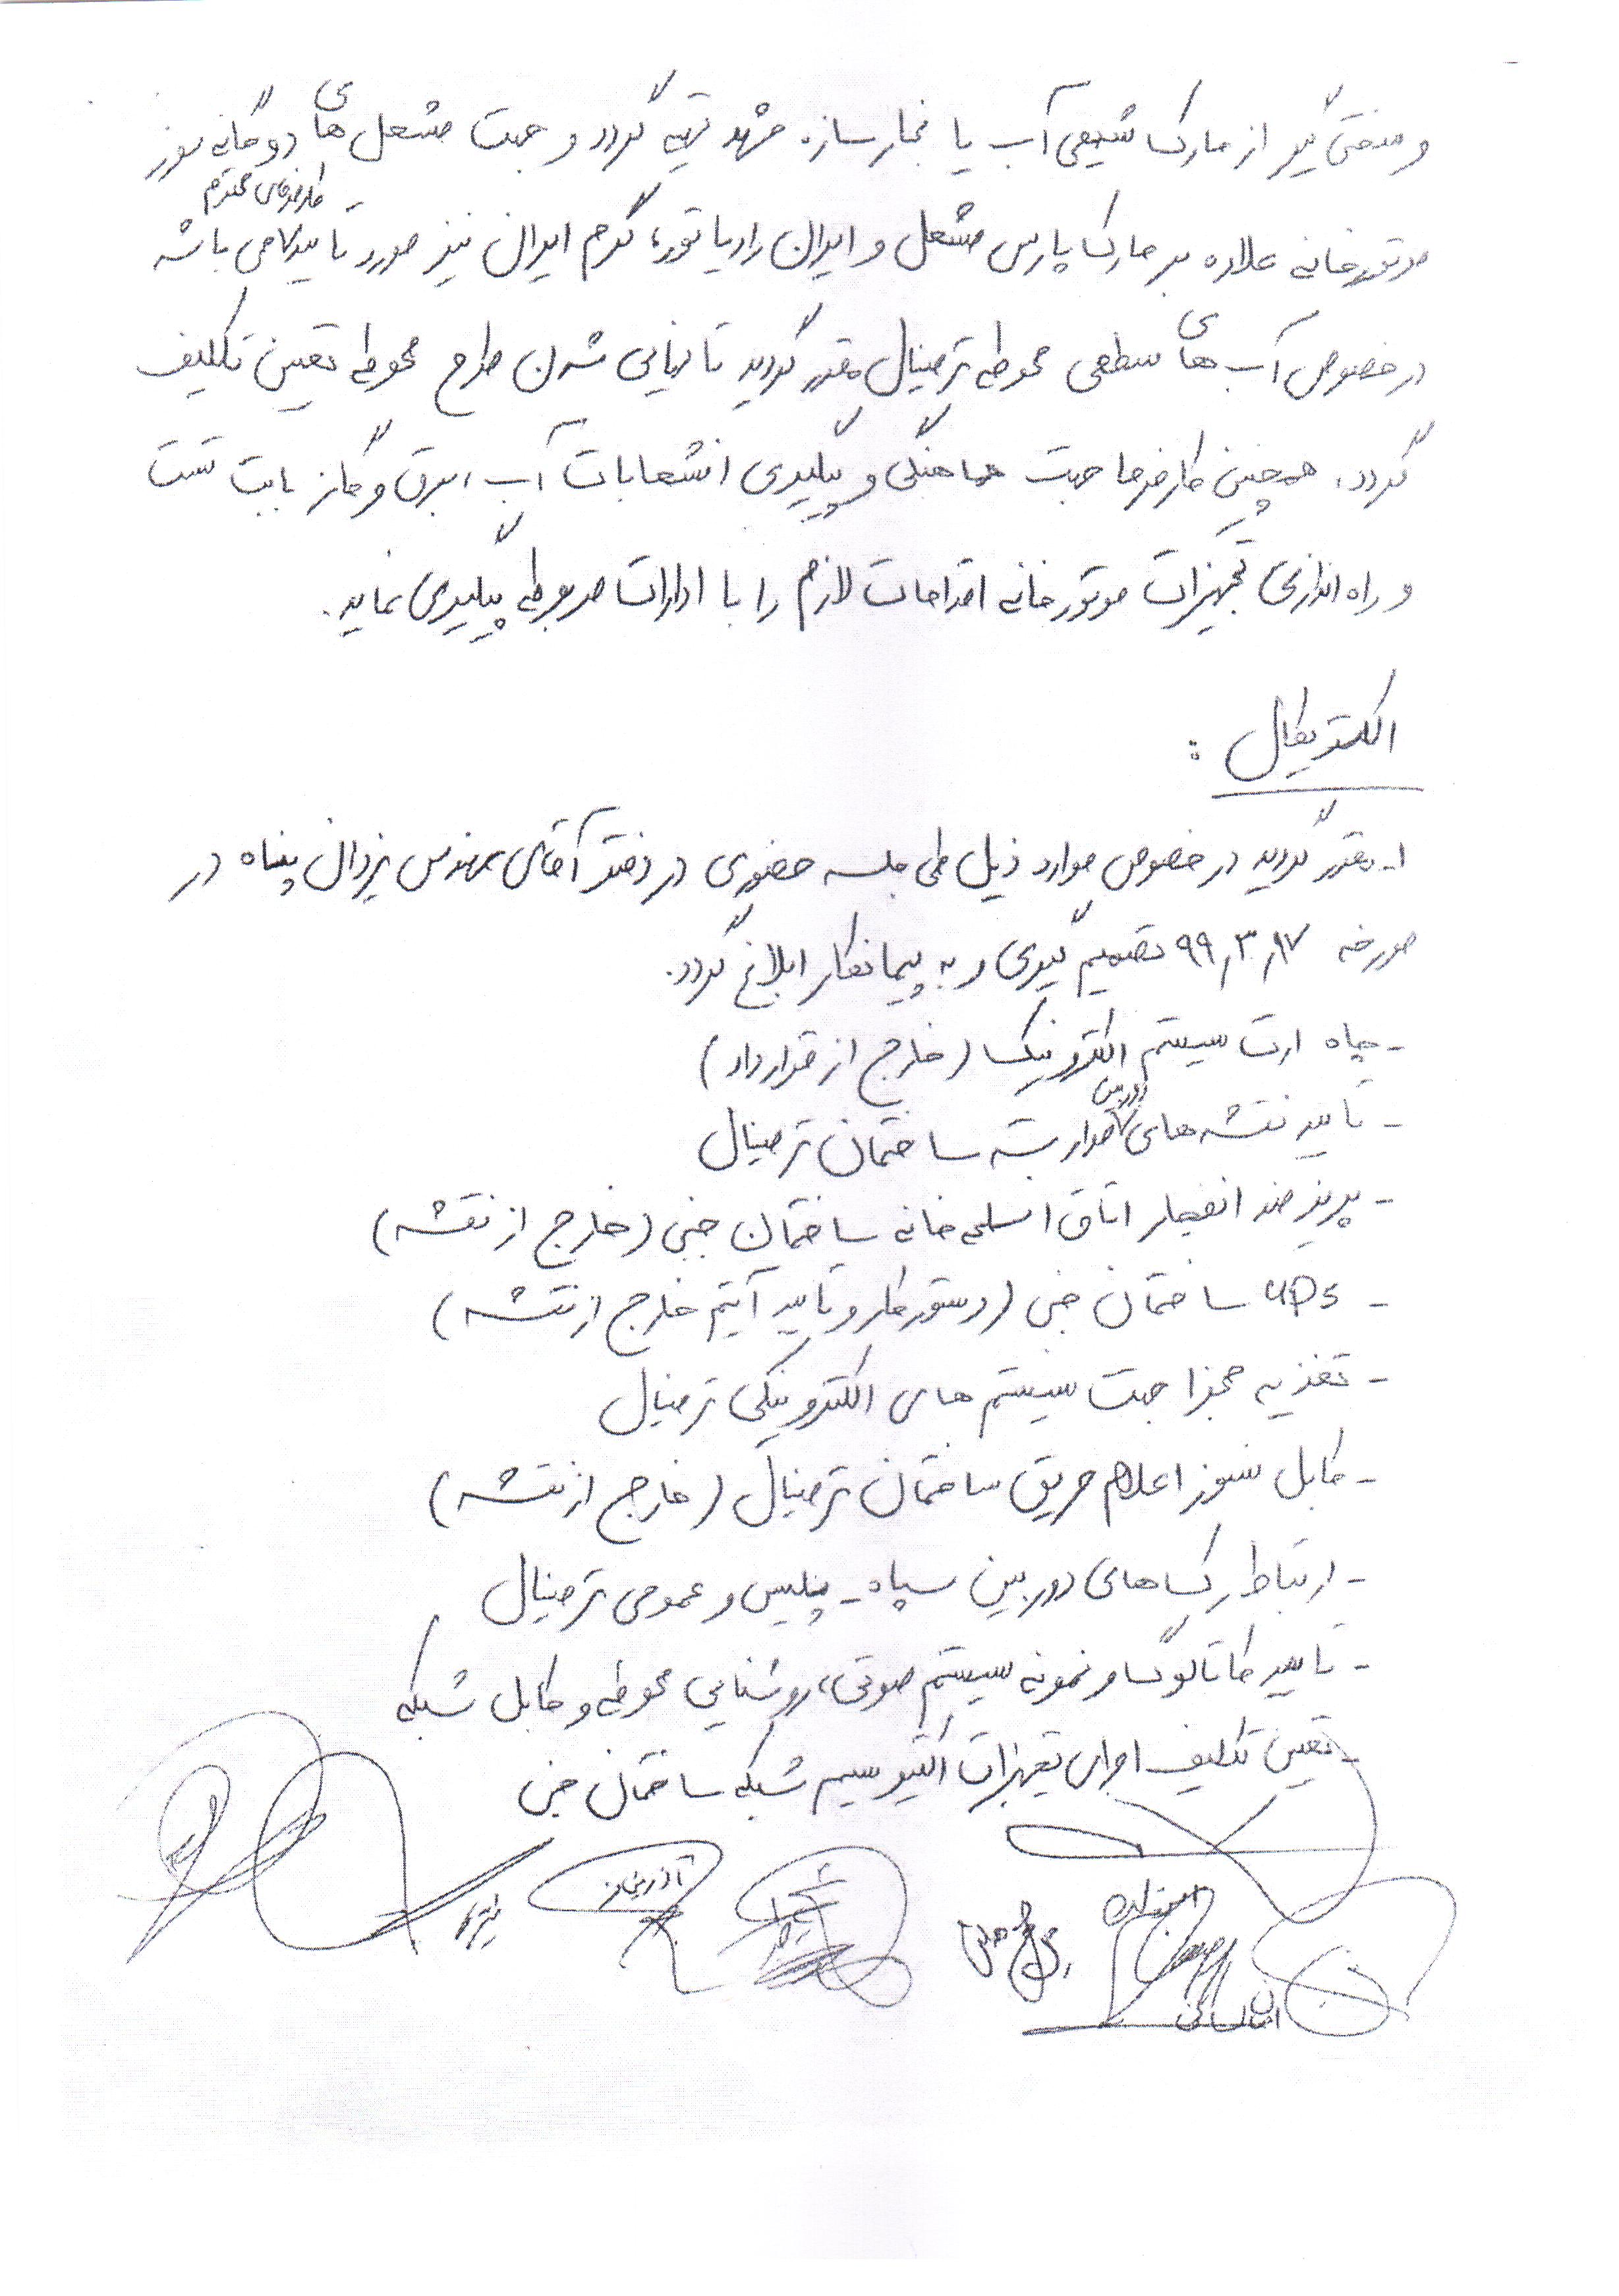 و سختی گیر از مارک شیمی آب یا بخار سازه مشهد تهیه گردد و جهت مشعل های دوگانه سوز
کارفرمای محترم
موتورخانه علاوه بر مارک پارس مشعل و ایران رادیاتور، گرم ایران نیز مورد تایید می باشد
در خصوص آب های سطحی محوطه ترمینال مقرر گردید تا نهایی شدن طرح محوطه تعیین تکلیف
گردد. همچنین کارفرما جهت هماهنگی و پیگیری انشعابات آب، برق و گاز بابت تست
و راه اندازی تجهیزات موتورخانه اقدامات لازم را با ادارات مربوطه پیگیری نماید.
الکتریکال :
۱- مقرر گردید در خصوص موارد ذیل طی جلسه حضوری در دفتر آقای مهندس یزدان پناه در
مورخه ۹۹٫۳٫۱۷ تصمیم گیری و به پیمانکار ابلاغ گردد.
- چاه ارت سیستم الکترونیک (خارج از قرارداد)
- تایید نقشه های دوربین مدار بسته ساختمان ترمینال
- پریز ضد انفجار اتاق اسلحه خانه ساختمان جنبی (خارج از نقشه)
- UPS ساختمان جنبی (دستور کار و تایید آیتم خارج از نقشه)
- تغذیه مجزا جهت سیستم های الکترونیکی ترمینال
- کابل نسوز اعلام حریق ساختمان ترمینال (خارج از نقشه)
- ارتباط رک های دوربین سپاه - پلیس و عمومی ترمینال
- تایید کاتالوگ و نمونه سیستم صوتی، روشنایی محوطه و کابل شبکه
- تعیین تکلیف اجرای تجهیزات اکتیو سیم شبکه ساختمان جنبی